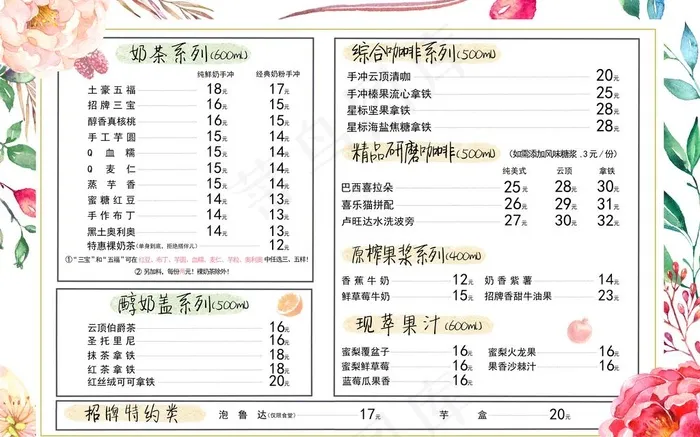 奶茶系列(600ml)
纯鲜奶手冲 经典奶粉手冲
土豪五福 18元 17元
招牌三宝 16元 15元
醇香真核桃 16元 15元
手工芋圆 15元 14元
Q血糯 15元 14元
Q麦仁 15元 14元
蒸芋香 15元 14元
蜜糖红豆 14元 13元
手作布丁 14元 13元
黑土奥利奥 14元 13元
特惠裸奶茶(单身到底，拒绝搭伴儿) 12元
①“三宝”和“五福”可在红豆、布丁、芋圆、血糯、麦仁、芋粒、奥利奥中任选三、五样!
② 另加料，每份元! 裸奶茶除外!
醇奶盖系列(500ml)
云顶伯爵茶 16元
圣托里尼 16元
抹茶拿铁 18元
红茶拿铁 18元
红丝绒可可拿铁 20元
综合咖啡系列(500ml)
手冲云顶清咖 20元
手冲榛果流心拿铁 25元
星标坚果拿铁 28元
星标海盐焦糖拿铁 28元
精品研磨咖啡(500ml) (如需添加风味糖浆.3元/份)
纯美式 云顶 拿铁
巴西喜拉朵 25元 28元 30元
喜乐猫拼配 26元 29元 31元
卢旺达水洗波旁 27元 30元 32元
原榨果浆系列(400ml)
香蕉牛奶 12元 奶香紫薯 14元
鲜草莓牛奶 15元 招牌香甜牛油果 23元
现苹果汁(600ml)
蜜梨覆盆子 16元 蜜梨火龙果 16元
蜜梨鲜草莓 16元 果香沙棘汁 16元
蓝莓瓜果香 16元
招牌特约类 泡鲁达(仅限食堂) 17元 芋盒 20元